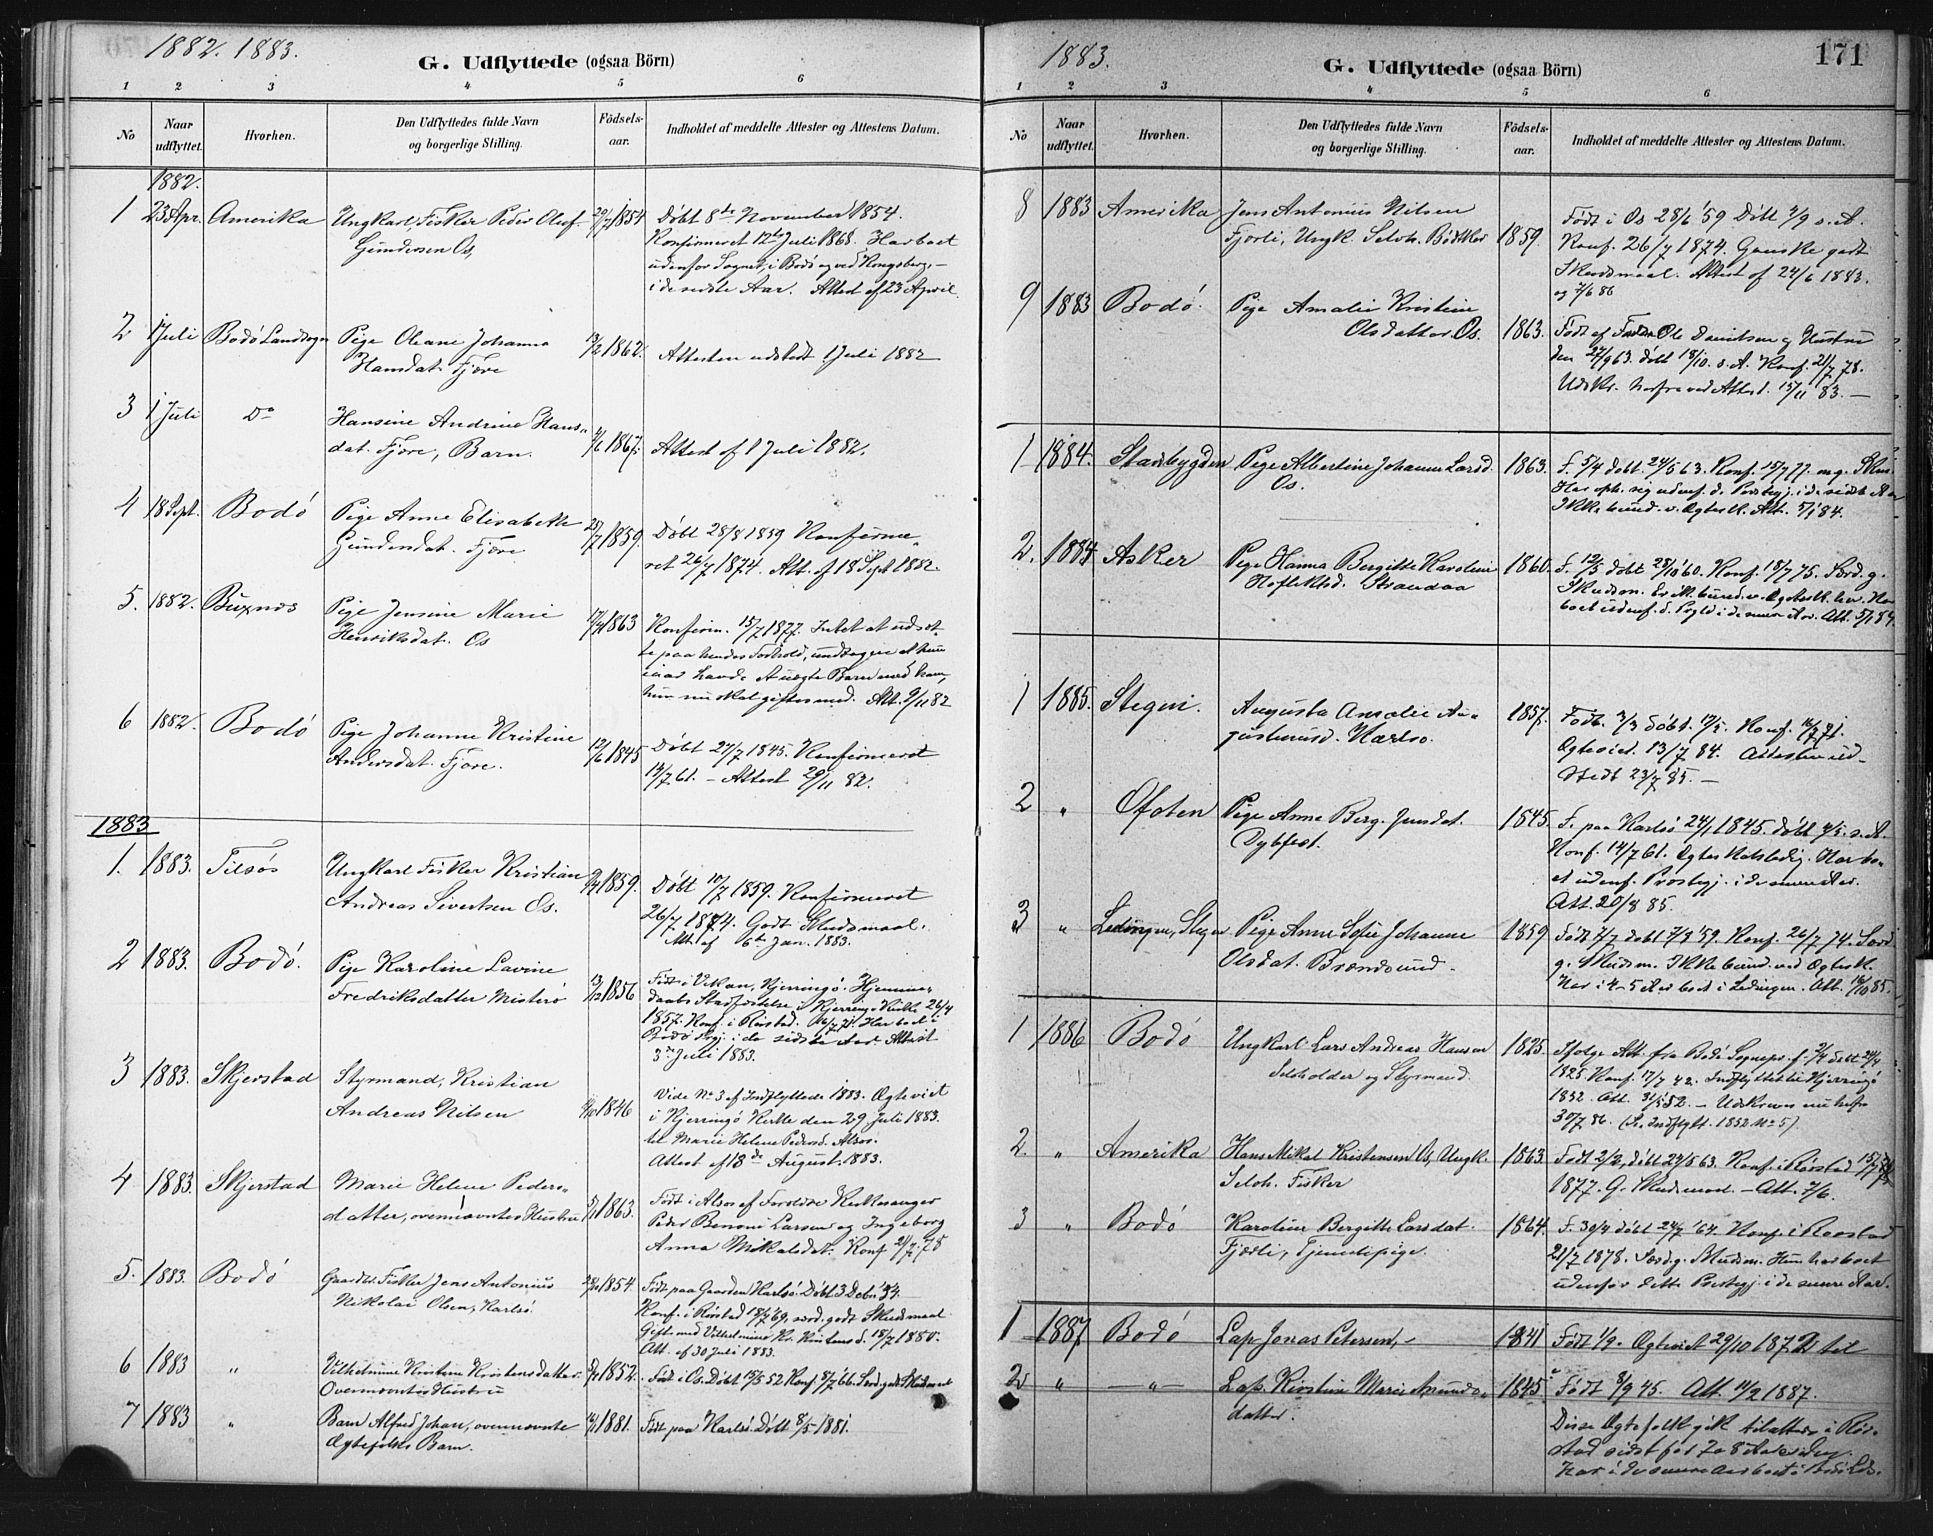 1882. 1883.
G. Udflyttede (ogsaa Börn)
1 2 3 4 5 6
No
Naar udflyttet.
Hvorhen.
Den Udflyttedes fulde Navn og borgerlige Stilling.
Födselsaar.
Indholdet af meddelte Attester og Attestens Datum.
1882.
1 23 Apr. Amerika Ungkarl Fisker Peder Oluf 1854 Döbt 8de November 1854.
Gundersen Os,
Konfirmeret 12te Juli 1868. Har boet
udenfor Sognet, i Bodö og ved Kongsberg,
i de sidste Aar. Attest af 23 April.
2 1 Juli Bodö Landsogn Pige Oleane Johanna 1862. Attesten udstedt 1 Juli 1882
Hansdat. Fjære
3 1 Juli Do Hansine Andrine Hans-
dat. Fjære, Barn. 1867. Attest af 1 Juli 1882.
4 18 Sept. Bodö Pige Anne Elisabeth
Gundersdat. Fjære 1859. Döbt 28/8 1859 Konfirme-
ret 26/7 1874. Att. af 18 Sept 1882.
5. 1882. Buxnes Pige Jensine Marie
Henriksdat. Os 1863 Konfirm. 15/7 1877. Intet at udsæt-
te paa hendes Forhold, undtagen at hun
iaar havde et uægte Barn med ham,
hun nu skal giftes med. Att. 9/11 82
6 1882. Bodö Pige Johanne Kristine
Andersdat. Fjære. 1845 Döbt 27/7 1845. Konfirmeret
14/7 61. – Attest 29/11 82.
1883
1. 1883. Tilsøs Ungkarl Fisker Kristian
Andreas Sivertsen Os. 1859. Döbt 17/7 1859. Konfirmeret
26/7 1874. Godt Skudsmaal.
Att. af 6te Jan. 1883.
2 1883. Bodö. Pige Karoline Lavine
Fredriksdatter Misterö 1856 Född i Vikan, Kjerringö. Hjemme-
daabs Stadfæstelse i Kjerringö Kirke 26/4
1857. Konf. i Rörstad. 16/7 71. Har boet i
Bodö Pgj. i de sidste Aar. Attest
3die Juli 1883.
3 1883. Skjerstad Styrmand, Kristian
Andreas Nilsen 1846 Vide No 3 af Indflyttede 1883. Ægteviet
i Kjerringö Kirke den 29 Juli 1883.
til Marie Helene Pedersd. Alsos.
Attest af 18de August 1883.
4 1883. Skjerstad Marie Helene Peders-
datter, ovennævntes Hustru 1863. Født i Alsos af Forældre Kirkesanger
Peder Benoni Larsen og Ingeborg
Anna Mikalsdat. Konf 21/7 78
5. 1883. Bodö Gaardbr. Fisker Jens Antonius
Nikolai Olsen, Karlsö 1854. Født paa Gaarden Karlsö. Döbt 3 Decbr 54.
Konf. i Rörstad 18/7 69, særd. godt Skudsmaal
Gift med Vilhelmine Kr. Kristensd. 18/7 1880.
Att. af 30 Juli 1883.
6 1883 " Vilhelmine Kristine Kristensdatter 1852. Född i Os. Döbt 52 Konf. 8/7 66. Særd. godt Skudsmaal
Ovennævntes Hustru
7 1883 " Barn Alfred Johan, ovennævnte 1881. Født paa Karlsö. Döbt 8/5 1881.
Ægtefolks Barn.
1883.
G. Udflyttede (ogsaa Börn)
171
1 2 3 4 5 6
No
Naar udflyttet.
Hvorhen.
Den Udflyttedes fulde Navn og borgerlige Stilling.
Födselsaar.
Indholdet af meddelte Attester og Attestens Datum.
8 1883 Amerika Jens Antonius Nilsen
Fjærli, Ungk. Selvh. Bödtker 1859. Född i Os 28/6 59 Döbt 4/9 s. A.
Konf. 26/7 1874. Ganske godt
Skudsmaal. Attest af 24/6 1883.
og 7/6 86
9 1883 Bodö. Pige Amalie Kristine
Olsdatter Os. 1863. Född af Ole Davidsen og Hustru
den 27/9 63. döbt 18/10. s. A. Konf. 21/7 78.
Udskr. herfra ved Attest. 15/11 83. –
1 1884. Stadsbygden Pige Albertine Johanna Larsd. 1863. F. 5/4 döbt. 24/5 63. Konf. 15/7 77. mg. Skm.
Os.
Har oph. sig udenf. d. Præstegj. i de sidste Aar
Ikke bund. v. Ægtesk. Att. 5/1 84.
2. 1884 Asker Pige Hanna Bergitte Karoline 1860. F. 12/5 döbt 28/10 60. Konf. 18/7 75. Særd. g.
Strandaa
Skudsm. Er ikke bund. v. Ægtesk. her. Har
boet udenf. d. Prgld i de senere Aar. Att. 5/1 84.
1 1885. Stegen. Augusta Amalie Au-
gustinusd. Karlsö. 1857. Födt. 3/3 döbt. 17/5. Konf. 16/7 71.
Ægteviet. 13/7 84. Attesten ud-
stedt 23/7 85. –
2 " Ofoten Pige Anne Berg. Jensdat.
Dybfest. 1845. F. paa Karlsö 24/1 1845. döbt 4/5. s. A.
Konf. 14/7 61. Ægteskabsledig. Har bo-
et udenf. Præstegj. i de senere Aar.
Att. 20/8 85.
3 " Lödingen, Stegen Pige Anne Sofie Johanne
Olsdat. Brændsund. 1859 Födt 7/7 döbt 7/9 59. Konf. 26/7 74. Særd
g. Skudsm. Ikke bund. ved Ægtesk.
Har i 4–5 Aar boet i Lödingen. Att. 16/10 85.
1 1886 Bodö Ungkarl Lars Andreas Hansen
Selvholder og Styrmand. 1825. Ifølge Att. fra Bodö Sognepr. f. 2/4 döbt 24/4
1825 Konf. 17/7 42. Indflyttet til Kjerringö
1852. Att. 31/5 52. – Udskreven nu herfra
30/7 86. (Se Indflytt. 1852 No 5).
2. " Amerika Hans Mikal Kristensen Os, Ungk.
Selvh. Fisker 1863. Född 2/2, döbt 24/5 63. Konf. i Rörstad 15/7
1877. G. Skudsmaal. – Att. 7/6.
3 " Bodö Karoline Bergitte Larsdat.
Fjærli, Tjenestepige. 1864. F. 30/4 döbt 24/7 64. Konf. i Rörstad
21/7 1878. Særd g. Skudsm. Hun har boet
udenfor dette Præstegj. i de senere Aar.
1 1887 Bodö Lap Jonas Petersen, – 1841 Född 1/9. Ægteviet 29/10 1872 til
2 " – " – Lap. Kirstine Marie Amunds-
datter. 1845 Född 8/9 45. Att. 11/2 1887.
Disse Ægtefolk gik til alters i Rör-
stad sidst for 7 a 8 Aar siden.
Har i de senere Aar boet i Bodö Lds.